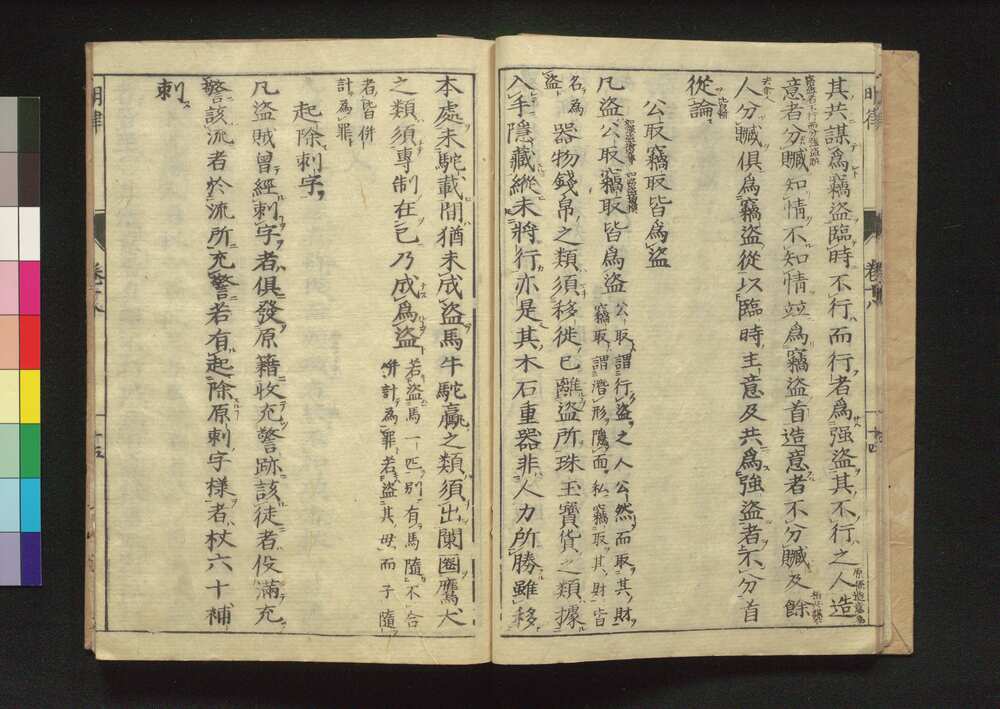 其共謀爲竊盜臨時不行而行者爲强盜其不行之人造
意者分贓知情不知情竝爲竊盜首造意者不分贓及餘
人分贓俱爲竊盜從以臨時主意及共爲強盜者不分首
從論
公取竊取皆爲盜
凡盜公取竊取皆爲盜 公取謂行盜之人公然而取其財
竊取謂潛形隱面私竊取其財皆
名爲
盜 器物錢帛之類須移徙已離盜所珠玉寶貨之類據
入手隱藏縱未將行亦是其木石重器非人力所勝雖移
本處未馱載間猶未成盜馬牛駝驘之類須出闌圈鷹犬
之類須專制在已乃成爲盜 若盜馬一匹別有馬隨不合
併計爲罪若盜其母而子隨
者皆併
計爲罪
起除刺字
凡盜賊曾經刺字者俱發原籍收充警跡該徒者役滿充
警該流者於流所充警若有起除原刺字樣者杖六十補
刺
明律
卷十八
十四
明律
卷十八
十五